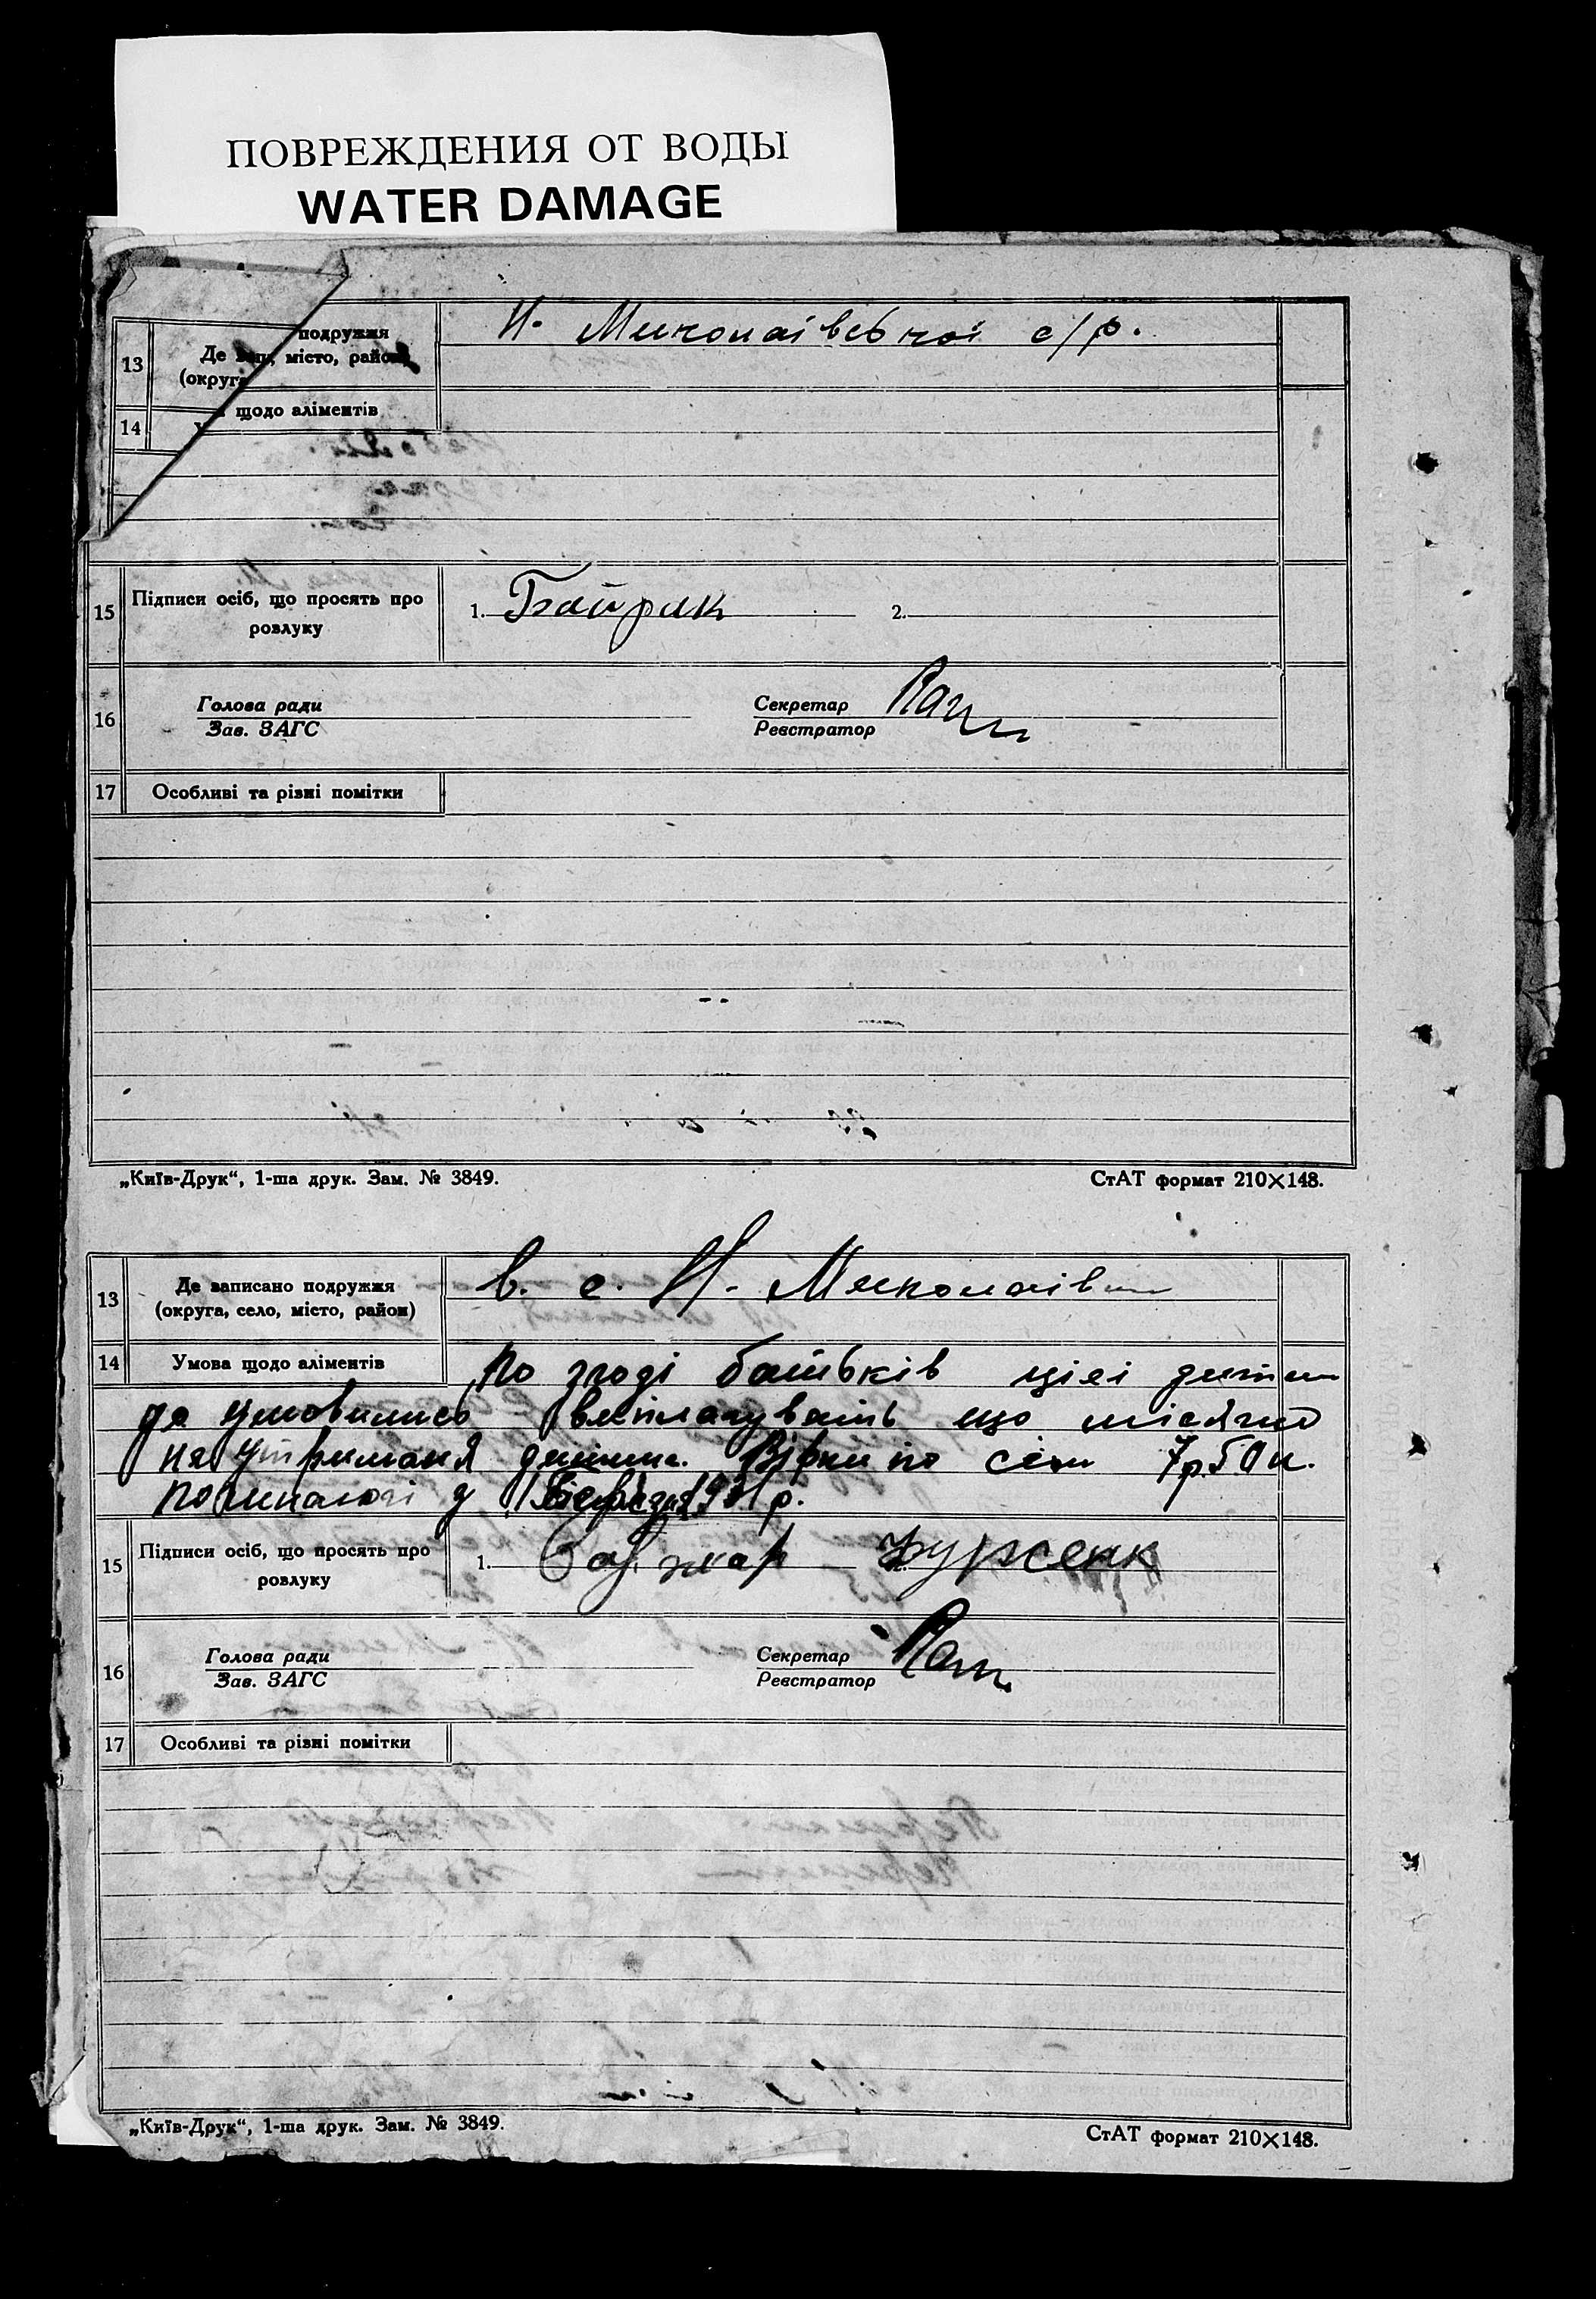 ПОВРЕЖДЕНИЯ ОТ ВОДЫ
WATER DAMAGE
13 Де зап місто, район
подружжя
(округа
Н. Миколаівської с/р.
14 щодо аліментів
15 Підписи осіб, що просять про
розлуку
1. Байрак 2.
16 Голова ради
Зав. ЗАГС
Секретар
Реєстратор
17 Особливі та різні помітки
„Київ-Друк“, 1-ша друк. Зам. № 3849. СтАТ формат 210×148.
13 Де записано подружжя
(округа, село, місто, район)
в. с. Н. Миколаів
14 Умова щодо аліментів
По згоді батьків цієі дитини
умовились виплачувать що місячно
на утриманя дитини. по сім 7р50к.
з 1 Березня 1931р.
15 Підписи осіб, що просять про
розлуку
1.
16 Голова ради
Зав. ЗАГС
Секретар
Реєстратор
17 Особливі та різні помітки
„Київ-Друк“, 1-ша друк. Зам. № 3849. СтАТ формат 210×148.